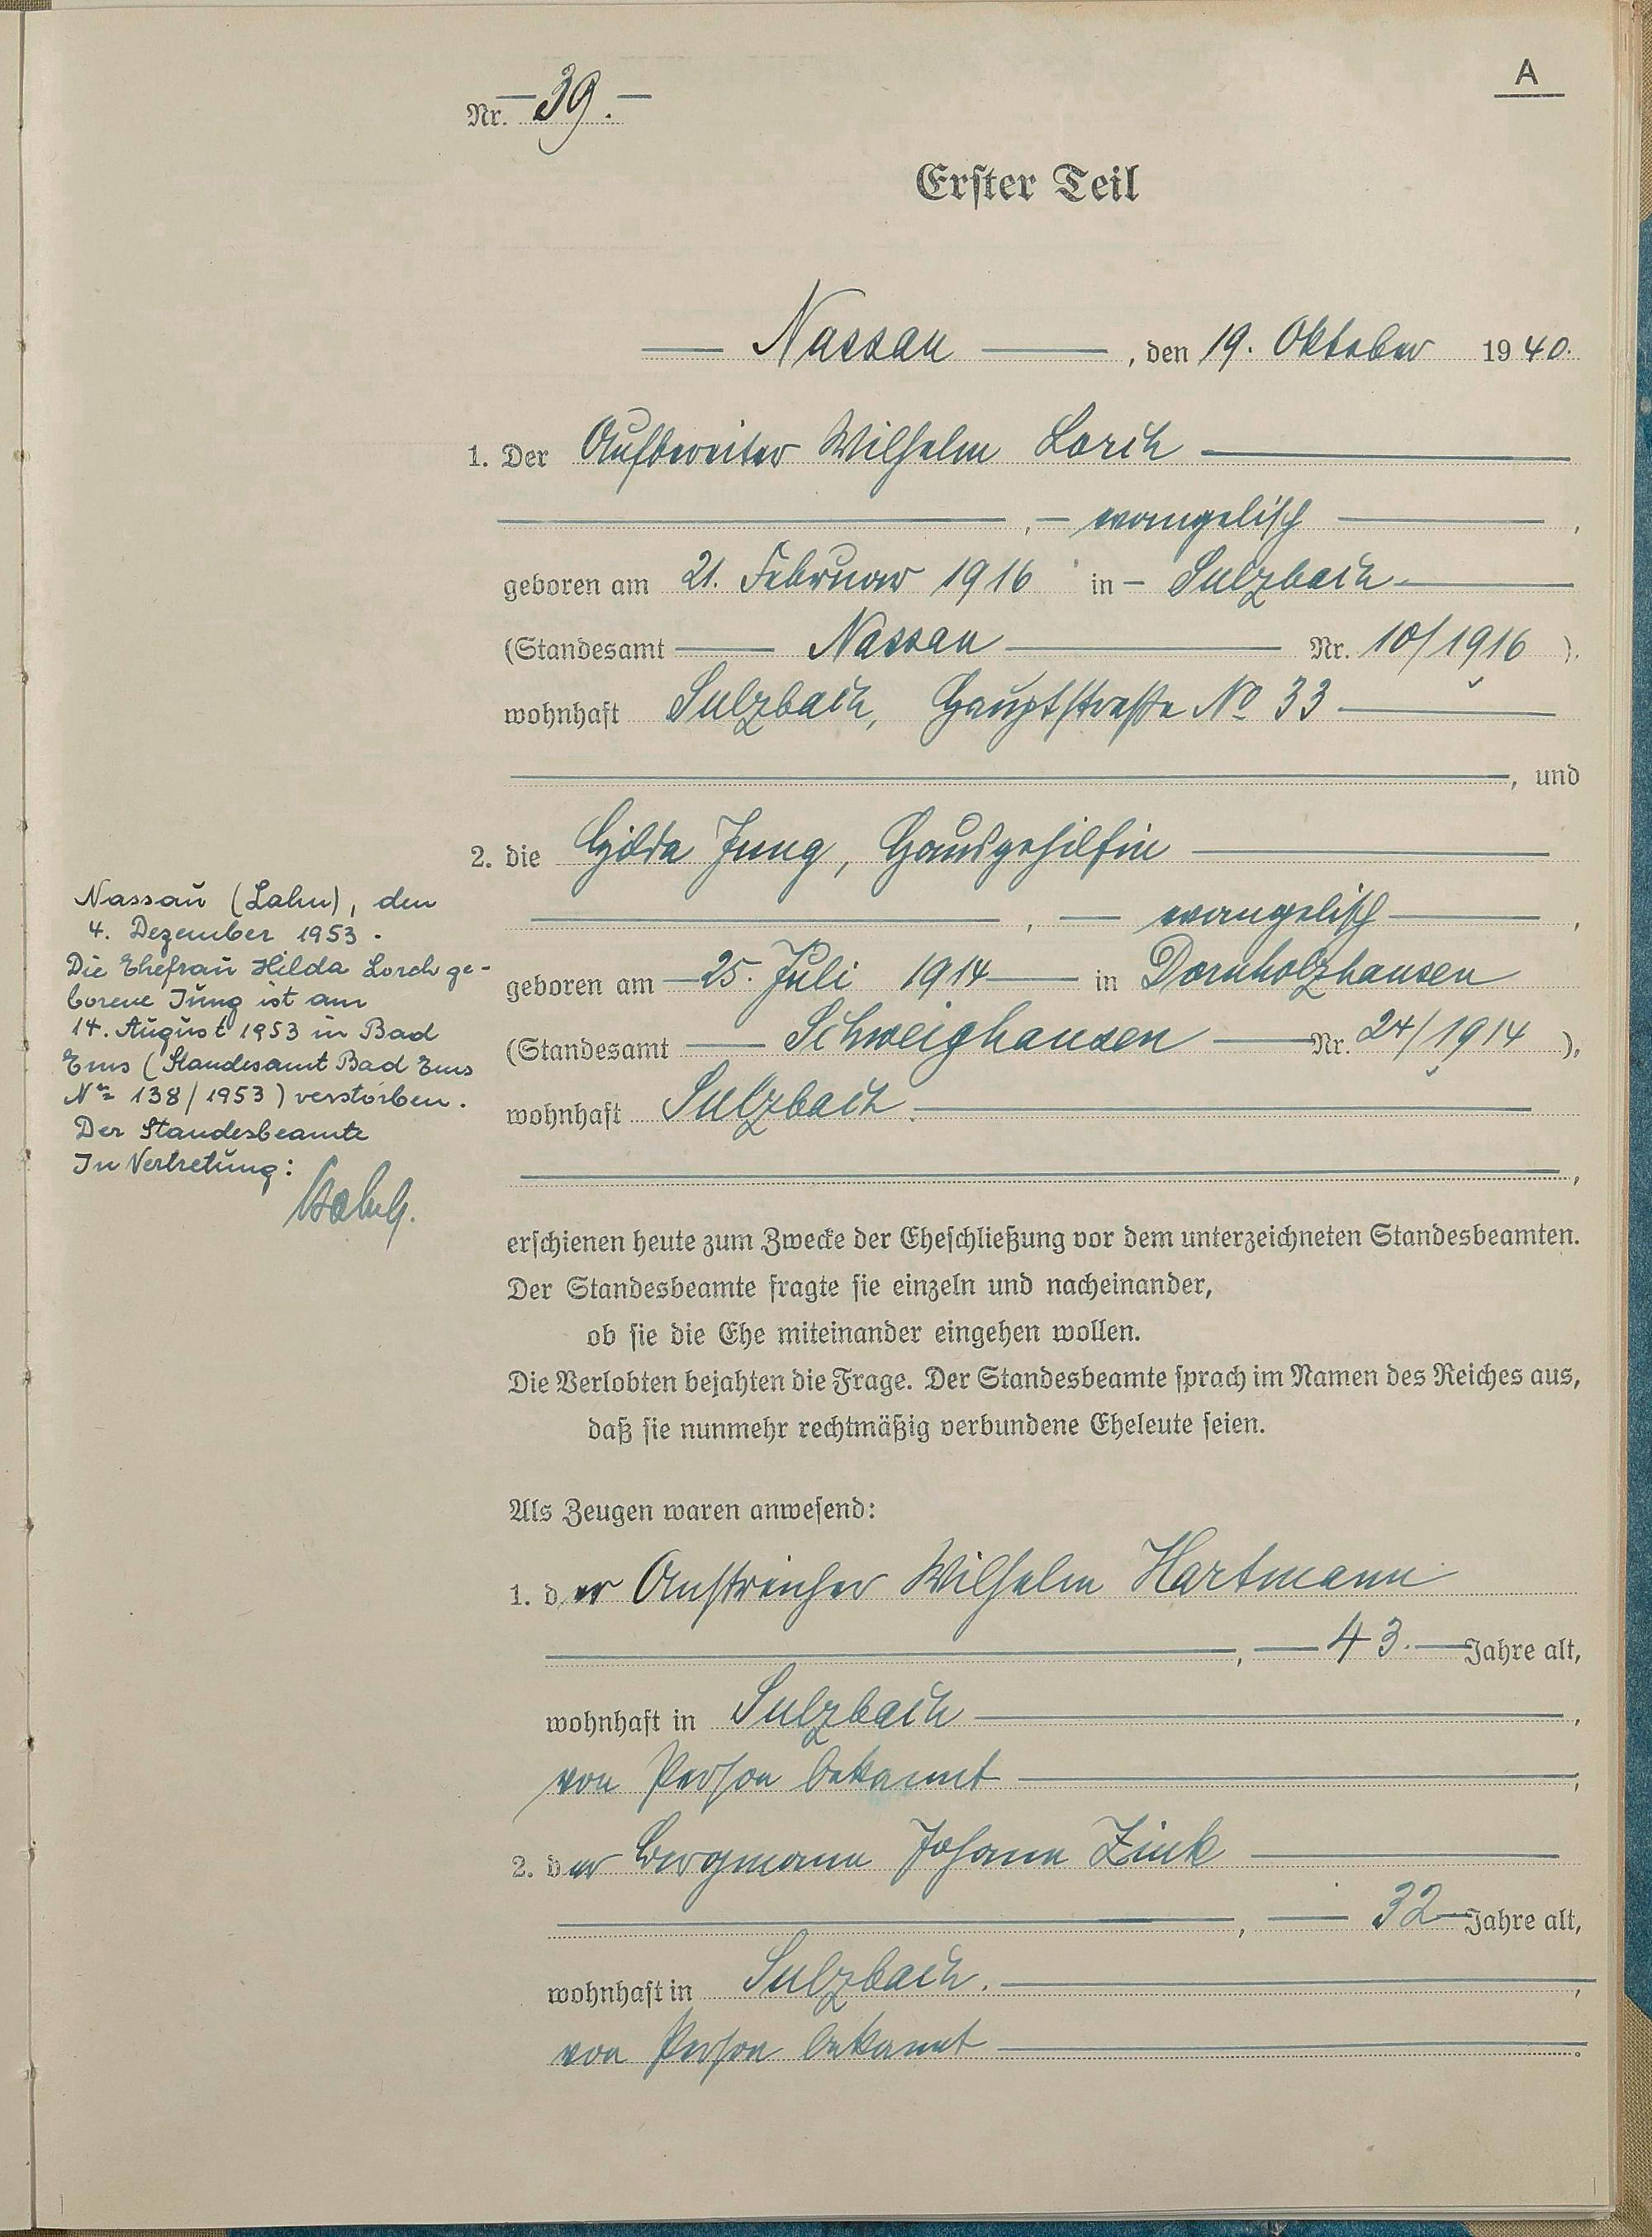 A
Nr. 39.
Erster Teil
Nassau, den 19. Oktober 1940.
1. Der Aufbereiter Wilhelm Lorch
, evangelisch,
geboren am 21. Februar 1916 in Sulzbach
(Standesamt Nassau Nr. 10/1916).
wohnhaft Sulzbach, Hauptstraße No 33
, und
2. die Hilda Jung, Hausgehilfin
, evangelisch,
geboren am 25. Juli 1914 in Dornholzhausen
(Standesamt Schweighausen Nr. 24/1914),
wohnhaft Sulzbach.
,
Nassau (Lahn), den
4. Dezember 1953.
Die Ehefrau Hilda Lorch ge-
borene Jung ist am
14. August 1953 in Bad
Ems (Standesamt Bad Ems
Nr 138/1953) verstorben.
Der Standesbeamte
In Vertretung:
erschienen heute zum Zwecke der Eheschließung vor dem unterzeichneten Standesbeamten.
Der Standesbeamte fragte sie einzeln und nacheinander,
ob sie die Ehe miteinander eingehen wollen.
Die Verlobten bejahten die Frage. Der Standesbeamte sprach im Namen des Reiches aus,
daß sie nunmehr rechtmäßig verbundene Eheleute seien.
Als Zeugen waren anwesend:
1. der Anstreicher Wilhelm Hartmann
, 43. Jahre alt,
wohnhaft in Sulzbach,
von Person bekannt;
2. der Bergmann Johann Zink
, 32 Jahre alt,
wohnhaft in Sulzbach.,
von Person bekannt.